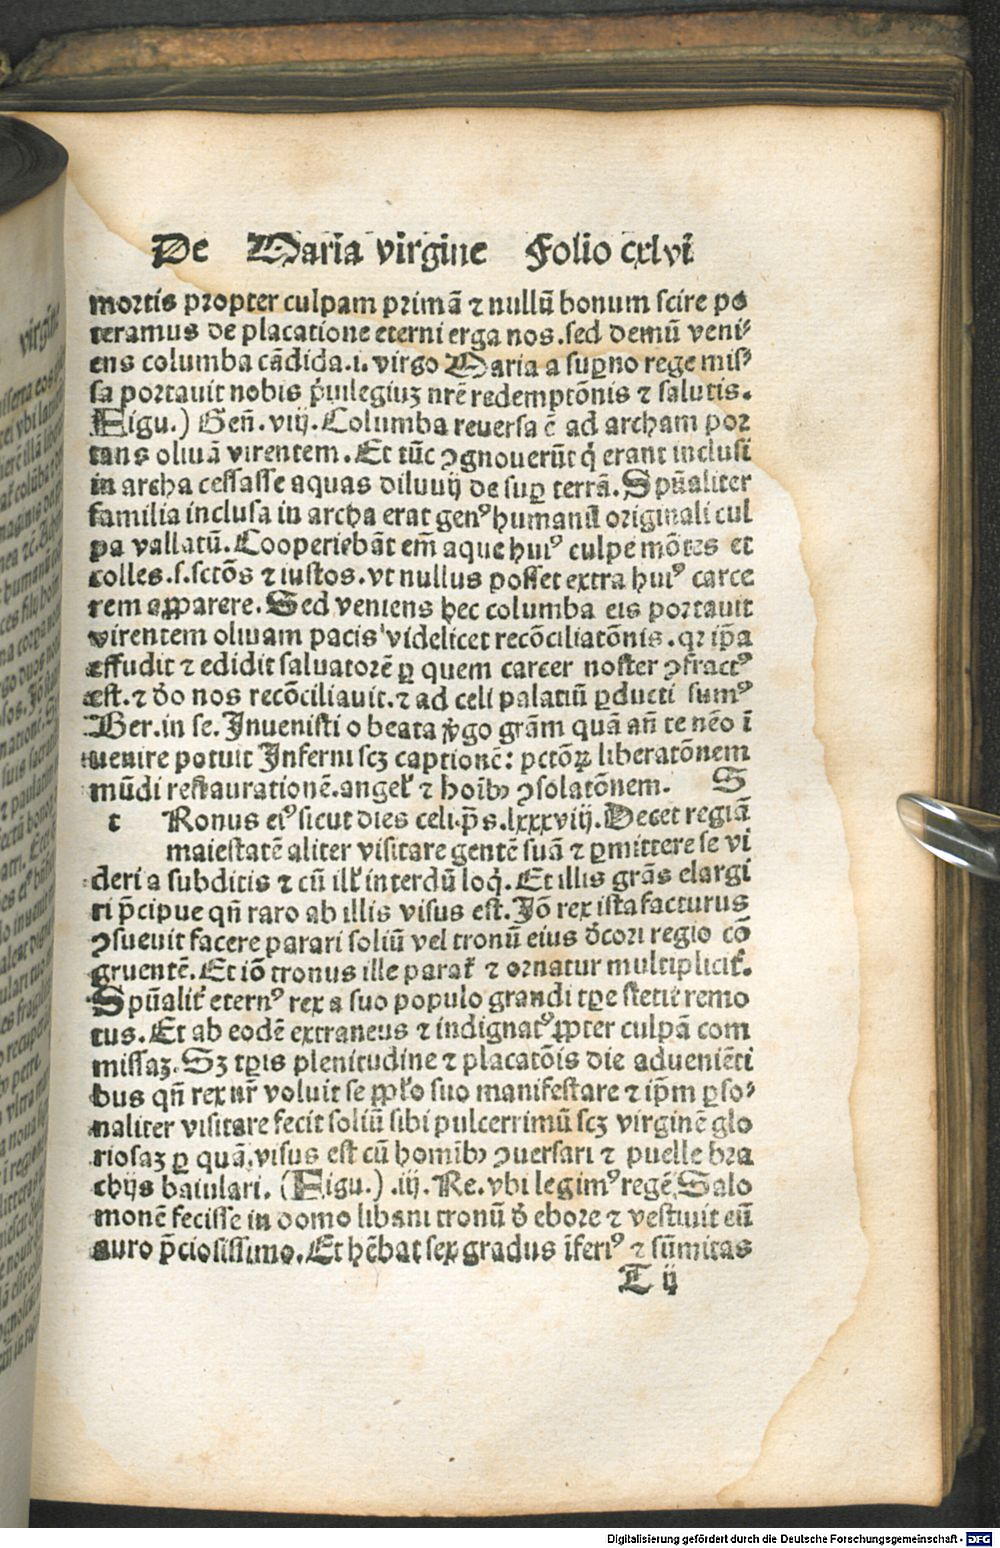 De Maria virgine Folio cxlvi
mortis propter culpam primā ⁊ nullū bonum scire po
teramus de placatione eterni erga nos. sed demū veni⸗
ens columba cādida .i. virgo Maria a sup̱no rege mis⸗
sa portauit nobis p̍uilegiuȝ nr̄e redemptōnis ⁊ salutis.
(Figu.) Geñ. viij. Columba reuersa ē ad archam por
tans oliuā virentem. Et tūc ꝯgnouerūt q̍ erant inclusi
in archa cessasse aquas diluuij de sup̱ terrā. Spūaliter
familia inclusa in archa erat genꝰ humanū originali cul
pa vallatū. Cooperiebāt em̄ aque huiꝰ culpe mōtes et
colles .s. sctōs ⁊ iustos. vt nullus posset extra huiꝰ carce
rem aꝑparere. Sed veniens hec columba eis portauit
virentem oliuam pacis videlicet recōciliatōnis. qꝛ ip̄a
effudit ⁊ edidit saluatorē ꝑ quem carcer noster ꝯfractꝰ
est. ⁊ d̄o nos recōciliauit. ⁊ ad celi palatiū ꝑducti sumꝰ
Ber. in se. Inuenisti o beata ꝟgo grām quā añ te nēo ī
uenire potuit Inferni scȝ captionē: pctōꝝ liberatōnem
mūdi restaurationē. angeloꝝ ⁊ hoībꝫ ꝯsolatōnem. S
t Ronus eiꝰ sicut dies celi. p̄s. lxxxviij. Decet regiā
maiestatē aliter visitare gentē suā ⁊ ꝑmittere se vi
deri a subditis ⁊ cū ill̓ interdū loq̍. Et illis grās elargi
ri p̄cipue qñ raro ab illis visus est. Iō rex ista facturus
ꝯsueuit facere parari soliū vel tronū eius d̓cori regio cō
gruentē. Et iō tronus ille parat̓ ⁊ ornatur multiplicit̓.
Spūalit̓ eternꝰ rex a suo populo grandi tꝑe stetit remo
tus. Et ab eodē extraneus ⁊ indignatꝰ ꝓpter culpā com
missaȝ. Sȝ tꝑis plenitudine ⁊ placatōis die adueniēti
bus qñ rex nr̄ voluit se ppl̓o suo manifestare ⁊ ip̄m ꝑso⸗
naliter visitare fecit soliū sibi pulcerrimū scȝ virginē glo
riosaȝ ꝑ quā visus est cū homībꝫ ꝯuersari ⁊ puelle bra
chijs baiulari. (Figu.) .iij. Re. vbi legimꝰ regē Salo
monē fecisse in domo libani tronū d̓ ebore ⁊ vestiuit eū
auro p̄ciosissimo. Et hēbat sex gradus īferiꝰ ⁊ sūmitas
T ij
Digitalisierung gefördert durch die Deutsche Forschungsgemeinschaft - DFG